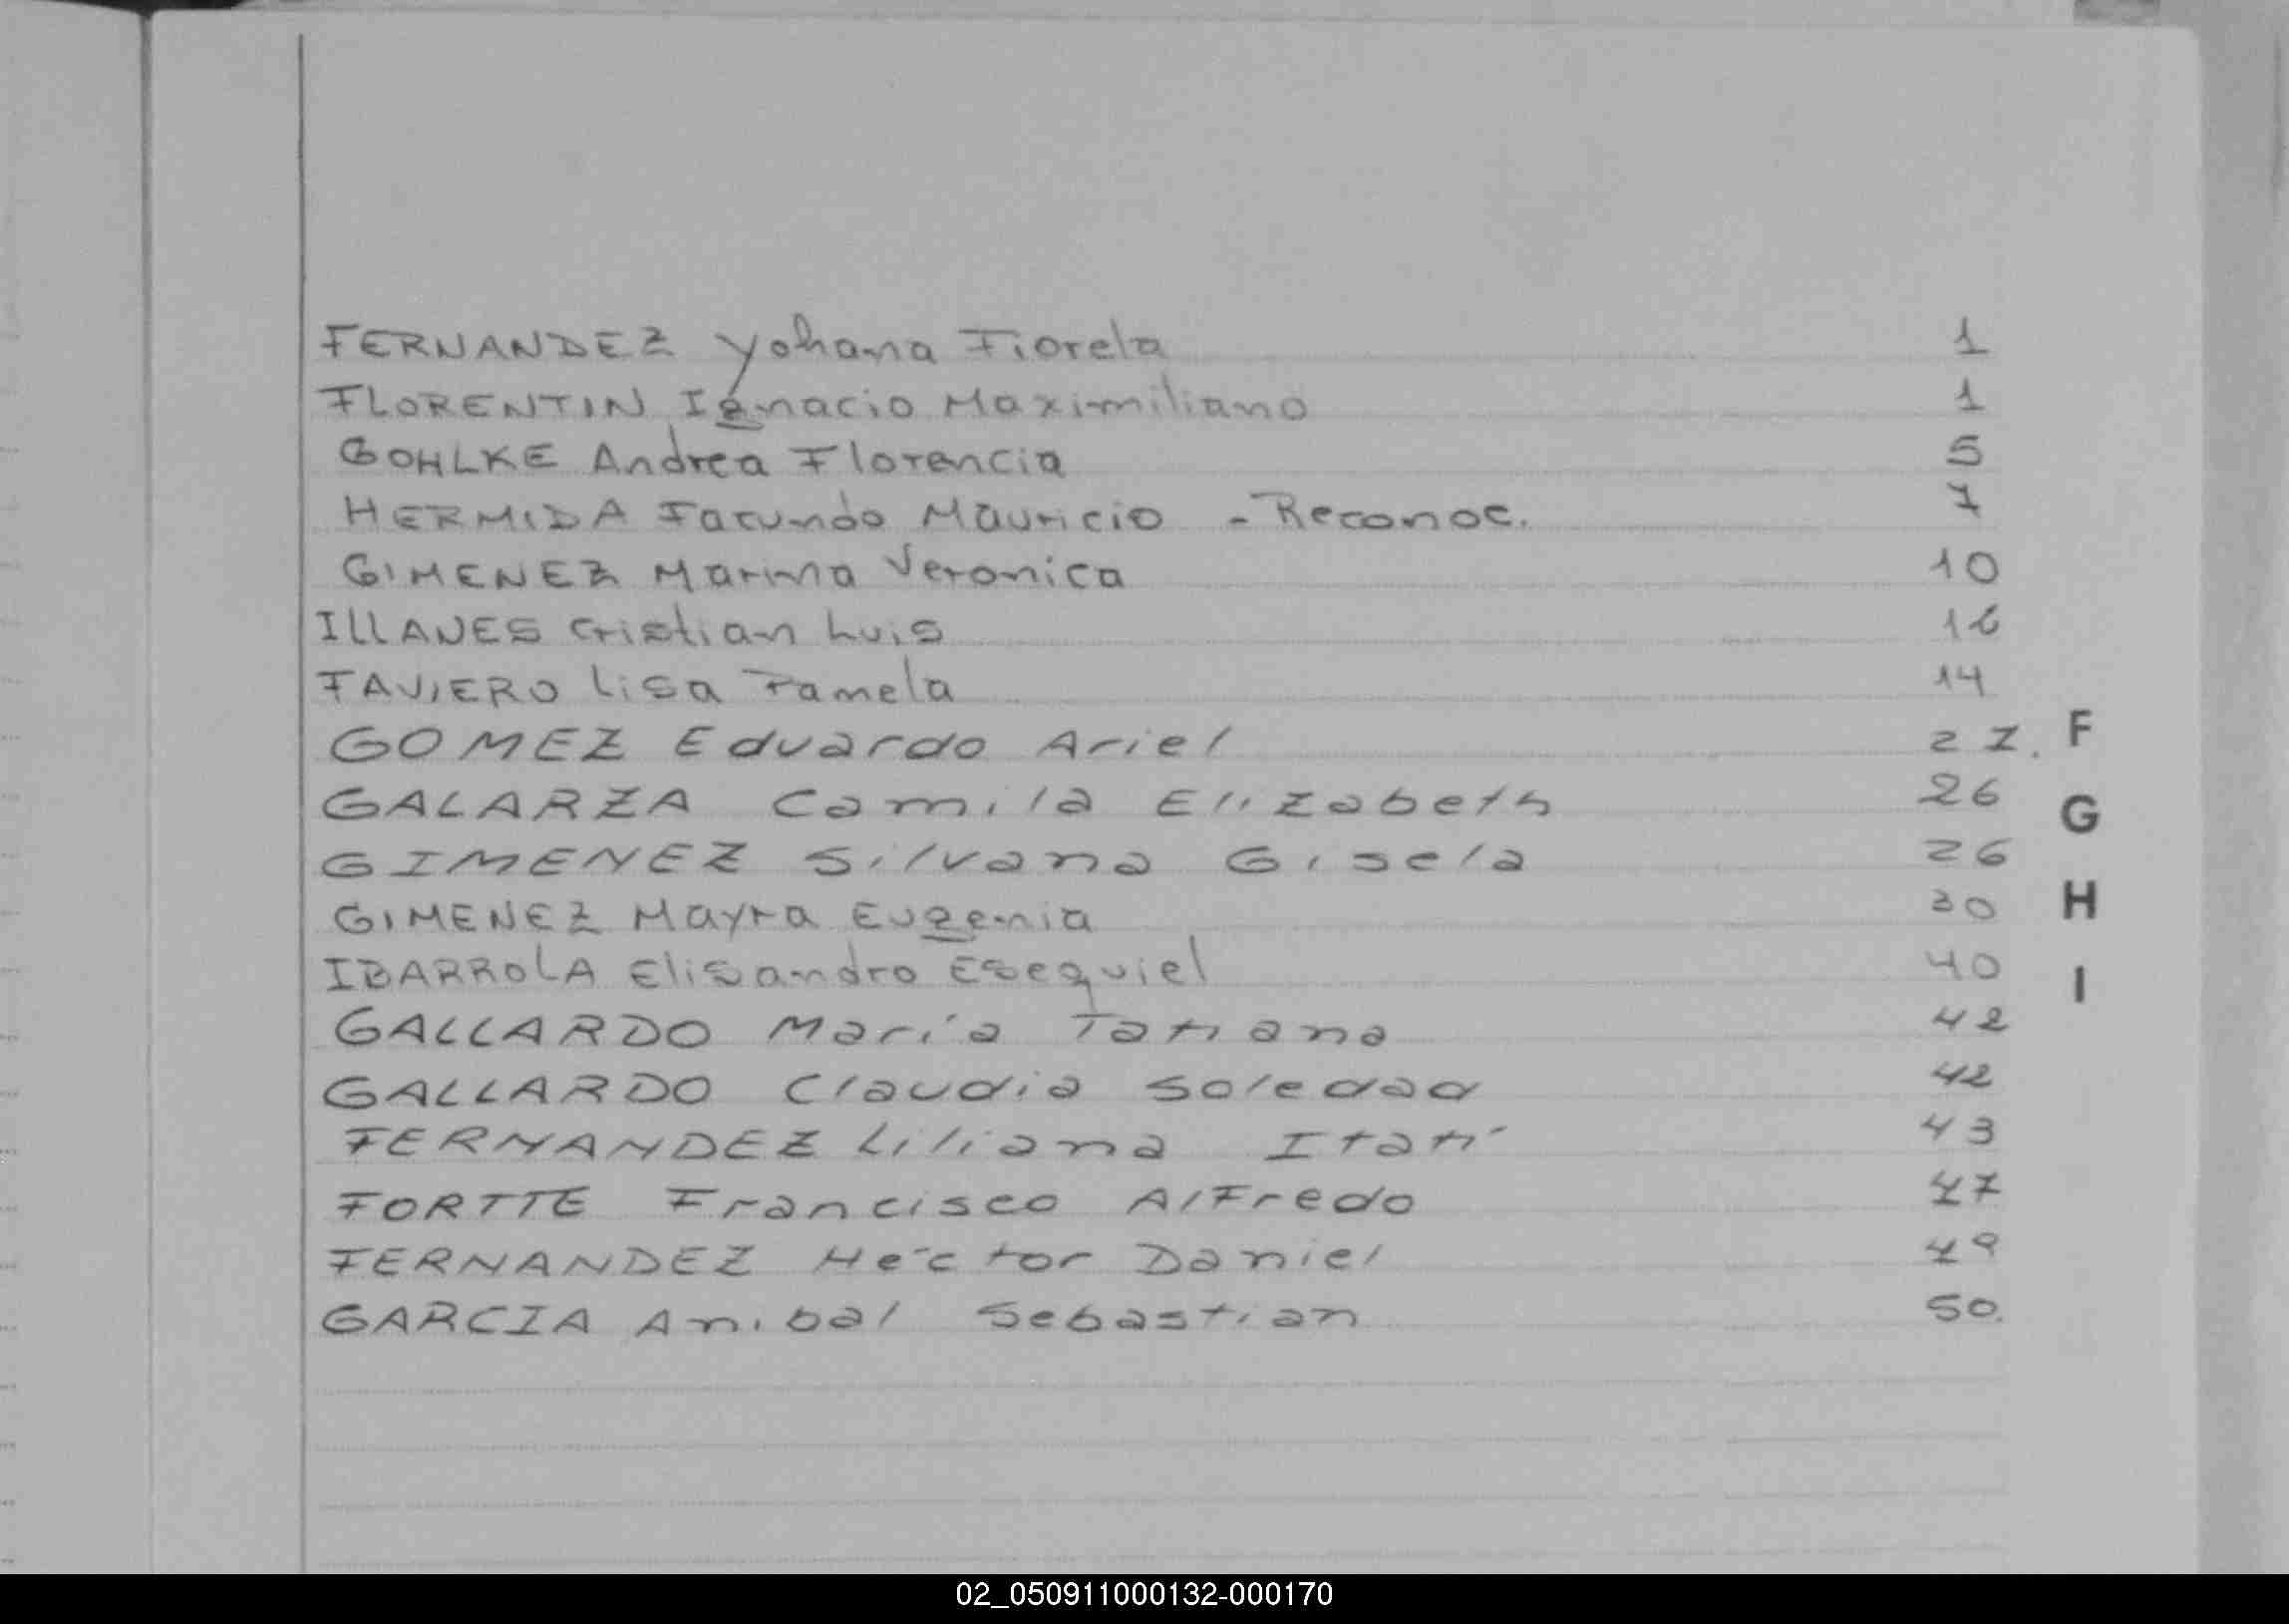 FERNANDEZ Yohana Fiorela 1
FLORENTIN Ignacio Maximiliano 1
GOHLKE Andrea Florencia 5
HERMIDA Facundo Mauricio - Reconoc. 7
GIMENEZ Marina Veronica 10
ILLANES Cristian Luis 16
FAVIERO Lisa Pamela 14
GOMEZ Eduardo Ariel
GALARZA Camila Elizabeth 26
GIMENEZ Silvana Gisela 26
GIMENEZ Mayra Eugenia 30
IBARROLA Elisandro Esequiel 40
GALLARDO María Tatiana 42
GALLARDO Claudia Soledad 42
FERNANDEZ Liliana Itatí 43
FORTTE Francisco Alfredo 47
FERNANDEZ Héctor Daniel 49
GARCIA Anibal Sebastian 50.
F
G
H
I
02_050911000132-000170